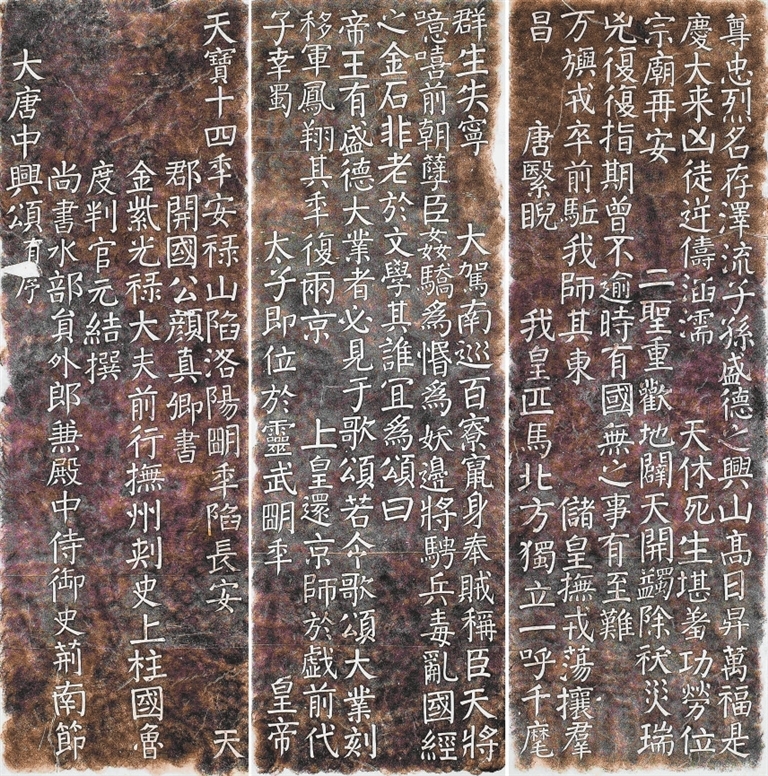 大唐中興頌有序
尚書水部貟外郎兼殿中侍御史荊南節
度判官元結撰
金紫光祿大夫前行撫州刾史上柱國魯
郡開國公顏真卿書
天寶十四秊安祿山陷洛陽眀秊陷長安 天
子幸蜀 太子即位於靈武眀秊 皇帝
移軍鳳翔其秊復兩京 上皇還京師於戲前代
帝王有盛德大業者必見于歌頌若今歌頌大業刻
之金石非老於文學其誰宜為頌曰
噫嘻前朝孽臣姦驕為惛為妖邊將騁兵毒亂國經
群生失寧 大駕南巡百寮竄身奉賊稱臣天將
昌 唐繄睨 我皇匹馬北方獨立一呼千麾
万旟戎卒前駈我師其東 儲皇撫戎蕩攘羣
兇復復指期曾不逾時有國無之事有至難
宗廟再安 二聖重歡地闢天開蠲除祅災瑞
慶大来凶徒逆儔涵濡 天休死生堪羞功勞位
尊忠烈名存澤流子孫盛德之興山高日昇萬福是